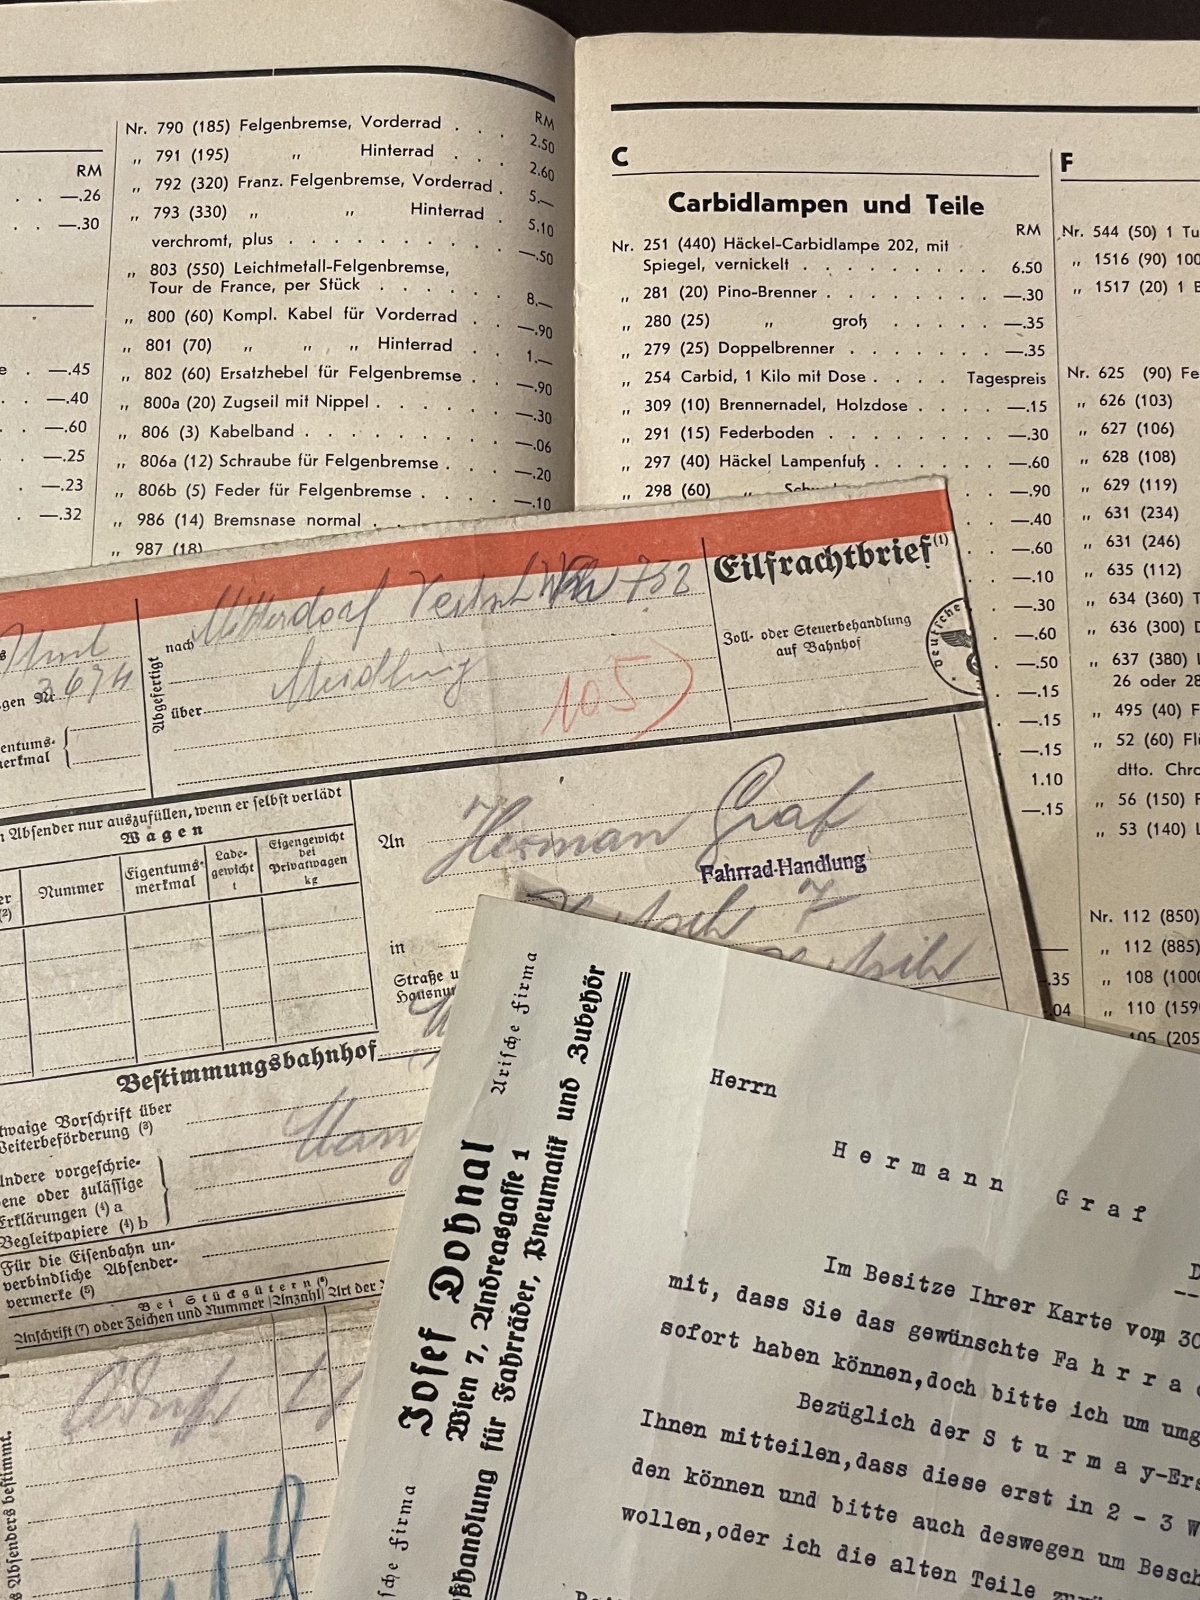 RM
—.26
—.30
—.45
—.40
—.60
—.25
—.23
—.32
RM
Nr. 790 (185) Felgenbremse, Vorderrad . . . 2.50
„ 791 (195) „ Hinterrad . . . 2.60
„ 792 (320) Franz. Felgenbremse, Vorderrad . 5.—
„ 793 (330) „ „ Hinterrad . 5.10
verchromt, plus . . . . . . . . . . —.50
„ 803 (550) Leichtmetall-Felgenbremse,
Tour de France, per Stück . . . . . . 8.—
„ 800 (60) Kompl. Kabel für Vorderrad . . —.90
„ 801 (70) „ „ „ Hinterrad . . 1.—
„ 802 (60) Ersatzhebel für Felgenbremse . . —.90
„ 800a (20) Zugseil mit Nippel . . . . . . —.30
„ 806 (3) Kabelband . . . . . . . . —.06
„ 806a (12) Schraube für Felgenbremse . . . —.20
„ 806b (5) Feder für Felgenbremse . . . . —.10
„ 986 (14) Bremsnase normal
„ 987 (18)
C
Carbidlampen und Teile
RM
Nr. 251 (440) Häckel-Carbidlampe 202, mit
Spiegel, vernickelt . . . . . . . . . 6.50
„ 281 (20) Pino-Brenner . . . . . . . . —.30
„ 280 (25) „ groß . . . . . —.35
„ 279 (25) Doppelbrenner . . . . . . . —.35
„ 254 Carbid, 1 Kilo mit Dose . . . . Tagespreis
„ 309 (10) Brennernadel, Holzdose . . . . —.15
„ 291 (15) Federboden . . . . . . . . —.30
„ 297 (40) Häckel Lampenfuß . . . . . . —.60
„ 298 (60) „ —.90
—.40
—.60
—.10
—.30
—.60
—.50
—.15
—.15
—.15
1.10
—.15
F
Nr. 544 (50) 1 Tu
„ 1516 (90) 100
„ 1517 (20) 1
Nr. 625 (90) Fe
„ 626 (103)
„ 627 (106)
„ 628 (108)
„ 629 (119)
„ 631 (234)
„ 631 (246)
„ 635 (112)
„ 634 (360) T
„ 636 (300) D
„ 637 (380)
26 oder 28
„ 495 (40) F
„ 52 (60) Flü
dtto. Chro
„ 56 (150) F
„ 53 (140)
Nr. 112 (850)
„ 112 (885)
„ 108 (1000
„ 110 (1590
105 (205
.35
.04
Eilfrachtbrief (1)
Zoll- oder Steuerbehandlung
auf Bahnhof
Deutsche
Abgefertigt
nach Mitterdorf 732
über Meidling
105)
gen Nr
entums-
merkmal
n Absender nur auszufüllen, wenn er selbst verlädt
Wagen
er
(2)
Nummer
Eigentums-
merkmal
Lade-
gewicht
t
Eigengewicht
bei
Privatwagen
kg
An Herman Graf
Fahrrad-Handlung
in
Straße u
Hausnu
Bestimmungsbahnhof
twaige Vorschrift über
Weiterbeförderung (3)
Andere vorgeschrie-
ene oder zulässige
Erklärungen (4) a
Begleitpapiere (4) b
Für die Eisenbahn un-
verbindliche Absender-
vermerke (5)
Bei Stückgütern (6)
Anschrift (7) oder Zeichen und Nummer
Anzahl
Art der
s Absenders bestimmt.
Arische Firma
Josef Dohnal
Wien 7, Andreasgasse 1
ßhandlung für Fahrräder, Pneumatik und Zubehör
sche Firma
Herrn
Hermann Graf
Im Besitze Ihrer Karte vom 30
mit, dass Sie das gewünschte Fahrra
sofort haben können,doch bitte ich um umg
Bezüglich der Sturmay-Ers
Ihnen mitteilen,dass diese erst in 2 - 3 W
den können und bitte auch deswegen um Besch
wollen,oder ich die alten Teile